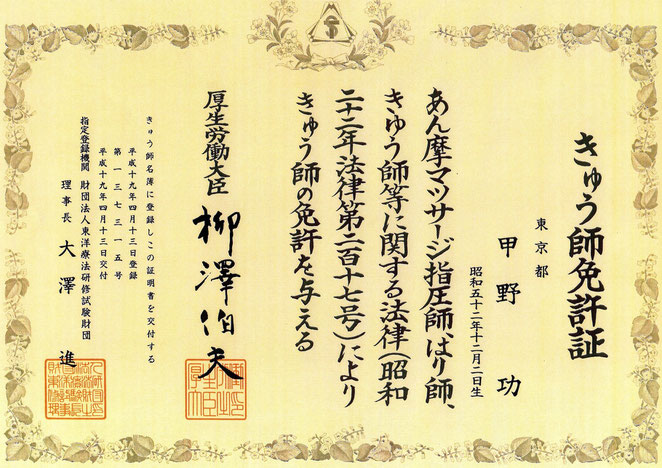 きゅう師免許証
東京都
甲野 功
昭和五十二年十二月二日生
あん摩マツサージ指圧師、はり師、
きゅう師等に関する法律(昭和
二十二年法律第二百十七号)により
きゅう師の免許を与える
厚生労働大臣 柳澤伯夫
きゅう師名簿に登録しこの証明書を交付する
平成十九年四月十三日登録
第一三七三一五号
平成十九年四月十三日交付
指定登録機関 財団法人東洋療法研修試験財団
理事長 大澤 進